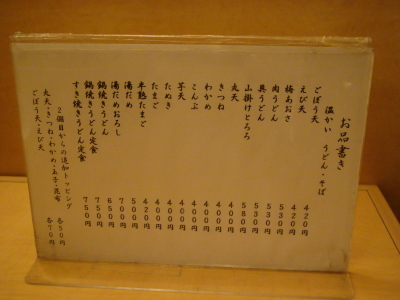 お品書き
温かい うどん・そば
ごぼう天 420円
えび天 420円
梅あおさ 530円
肉うどん 530円
具うどん 530円
山掛けとろろ 580円
丸天 400円
きつね 400円
わかめ 400円
こんぶ 400円
芋天 400円
たぬき 400円
たまご 400円
半熟たまご 420円
湯だめ 500円
湯だめおろし 700円
鍋焼きうどん 650円
鍋焼きうどん定食 750円
すき焼きうどん定食 750円
2個目からの追加トッピング
丸天・きつね・わかめ・玉子・昆布 各50円
ごぼう天・えび天 各70円